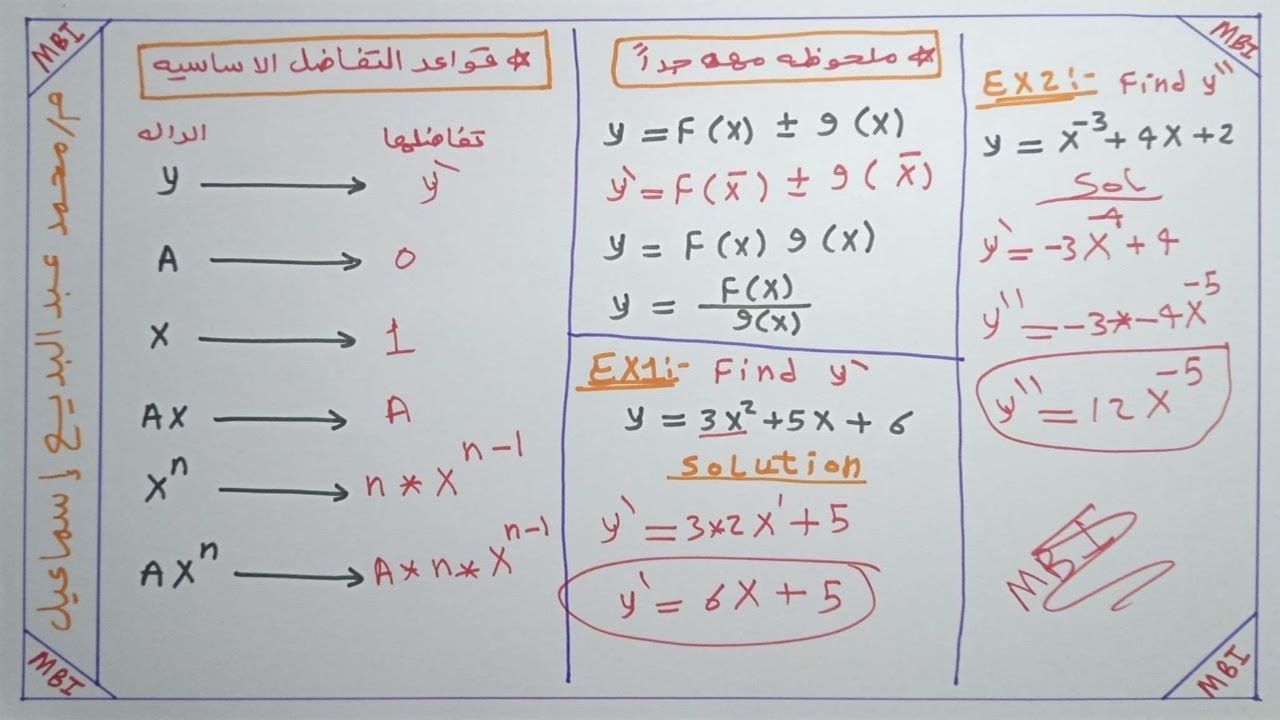 MBI
MBI
م/محمد عبد البديع إسماعيل
* قواعد التفاضل الاساسيه
الداله تفاضلها
y → y`
A → 0
X → 1
AX → A
X^n → n * X^{n-1}
AX^n → A * n * X^{n-1}
* ملحوظه مهمه جداً
y = F(x) ± g(x)
y` = F(x̄) ± g(x̄)
y = F(x) g(x)
y = F(X) / g(x)
EX1:- Find y`
y = 3x² + 5x + 6
Solution
y` = 3*2x^1 + 5
y` = 6X + 5
EX2:- Find y''
y = x^{-3} + 4X + 2
Sol
y` = -3X^{-4} + 4
y'' = -3*-4X^{-5}
y'' = 12X^{-5}
MBI
MBI
MBI